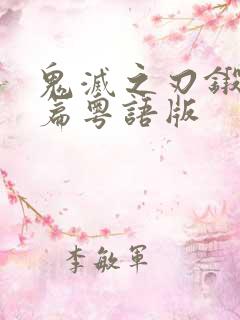 鬼滅之刃鍛
篇粵語版
李敏軍